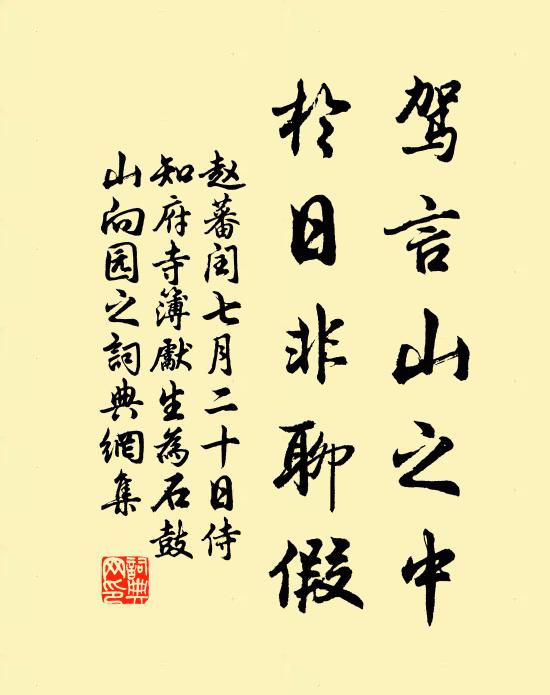 驾言山之中
於日非聊假
赵蕃闰七月二十日侍
知府寺簿献生为石鼓
山向园之词典網集
詞典网印